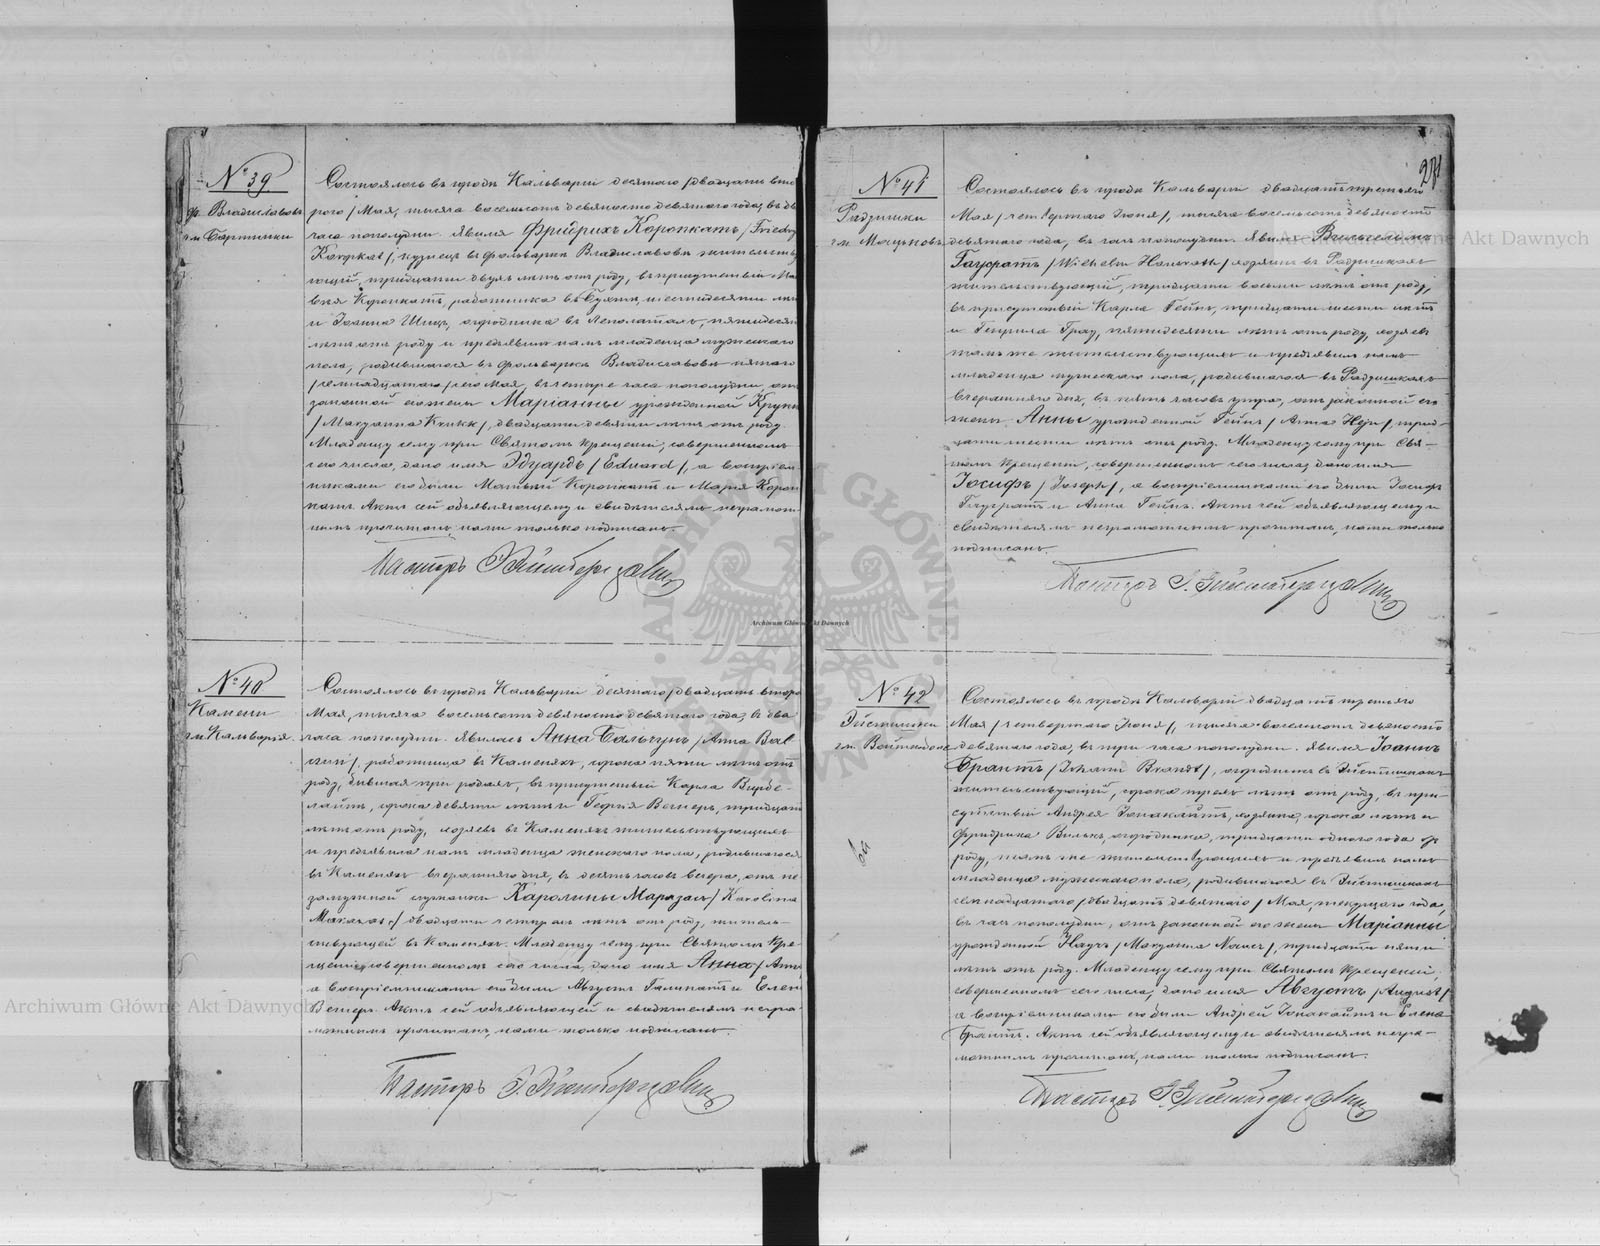 № 39
ф. Владиславовъ
гм. Бартники
Состоялось въ городѣ Кальваріи десятаго /двадцать вто
рого/ Мая, тысяча восемьсотъ девяносто девятаго года, въ два
часа пополудни. Явился Фридрихъ Коропкатъ /Friedrich
Koropkat/, кузнецъ въ фольваркѣ Владиславовѣ жительств
ующій, тридцати двухъ лѣтъ отъ роду, въ присутствіи Ма
Коропкатъ, работника въ шестидесяти лѣтъ
и Іоанна огородника въ пятидесяти
лѣтъ отъ роду и предъявилъ намъ младенца мужескаго
пола, родившагося въ фольваркѣ Владиславовѣ пятаго
/семнадцатаго/ сего Мая, въ четыре часа пополудни, отъ
законной его жены Маріанны урожденной Крукъ
/Maryanna Krukk/, двадцати девяти лѣтъ отъ роду.
Младенцу сему при Святомъ Крещеніи, совершенномъ
сего числа, дано имя Эдуардъ /Eduard/, а воспріем
никами его были Матвѣй Коропкатъ и Марія Короп
катъ. Актъ сей объявляющему и свидѣтелямъ неграмот
нымъ прочитанъ, нами только подписанъ.
Пасторъ
№ 40
Камени
гм. Кальварія.
Состоялось въ городѣ Кальваріи десятаго /двадцать второго/
Мая, тысяча восемьсотъ девяносто девятаго года, въ два
часа пополудни. Явилась Анна Бальчунъ /Anna Bal
czun/, работница въ Каменяхъ, сорока пяти лѣтъ отъ
роду, бывшая при родахъ, въ присутствіи Карла Вирбе-
лайтъ, сорока девяти лѣтъ и Вегнеръ, тридцати
лѣтъ отъ роду, хозяевъ въ Каменяхъ жительствующихъ
и предъявила намъ младенца женскаго пола, родившагося
въ Каменяхъ вчерашняго дня, въ десять часовъ вечера, отъ не
замужней служанки Каролины Маразасъ /Karolina
двадцати четырехъ лѣтъ отъ роду, житель-
ствующей въ Каменяхъ. Младенцу сему при Святомъ Кре-
щеніи, совершенномъ сего числа, дано имя Анна /Anna/
а воспріемниками его были Августъ и Елена
Вегнеръ. Актъ сей объявляющей и свидѣтелямъ негра-
мотнымъ прочитанъ, нами только подписанъ.
Пасторъ
271
№ 41
Радзишки
гм. Мацьковъ
Состоялось въ городѣ Кальваріи двадцать третьяго
Мая /четвертаго Іюня/, тысяча восемьсотъ девяносто
девятаго года, въ часъ пополудни. Явился Вильгельмъ
Гаусратъ /Wilhelm Hausrath/ хозяинъ въ Радзишкахъ
жительствующій, тридцати восьми лѣтъ отъ роду,
въ присутствіи Карла Гейнъ, тридцати шести лѣтъ
и пятидесяти лѣтъ отъ роду, хозяевъ
тамъ же жительствующихъ и предъявилъ намъ
младенца мужескаго пола, родившагося въ Радзишкахъ
вчерашняго дня, въ пять часовъ утра, отъ законной его
жены Анны урожденной Гейнъ /Anna Hejn/, трид-
цати шести лѣтъ отъ роду. Младенцу сему при Свя-
томъ Крещеніи, совершенномъ сего числа, дано имя
Іосифъ /Joseph/, а воспріемниками его были Іосифъ
Гаусратъ и Анна Гейнъ. Актъ сей объявляющему и
свидѣтелямъ неграмотнымъ прочитанъ, нами только
подписанъ.
Пасторъ
№ 42
гм. Войткобол
Состоялось въ городѣ Кальваріи двадцать третьяго
Мая /четвертаго Іюня/, тысяча восемьсотъ девяносто
девятаго года, въ три часа пополудни. Явился Іоаннъ
Брантъ /Johann Brandt/, огородникъ въ
жительствующій, сорока трехъ лѣтъ отъ роду, въ при-
сутствіи Андрея хозяина, сорока лѣтъ и
Фридриха Вилькъ, огородника, тридцати одного года отъ
роду, тамъ же жительствующихъ и предъявилъ намъ
младенца мужескаго пола, родившагося въ
семнадцатаго /двадцать девятаго/ Мая, текущаго года,
въ часъ пополудни, отъ законной его жены Маріанны
урожденной /Maryanna тридцати пяти
лѣтъ отъ роду. Младенцу сему при Святомъ Крещеніи,
совершенномъ сего числа, дано имя Августъ /August/
а воспріемниками его были Андрей и Елена
Брантъ. Актъ сей объявляющему и свидѣтелямъ негра-
мотнымъ прочитанъ, нами только подписанъ.
Пасторъ
Archiwum Główne Akt Dawnych
Archiwum Główne Akt Dawnych
Archiwum Główne Akt Dawnych